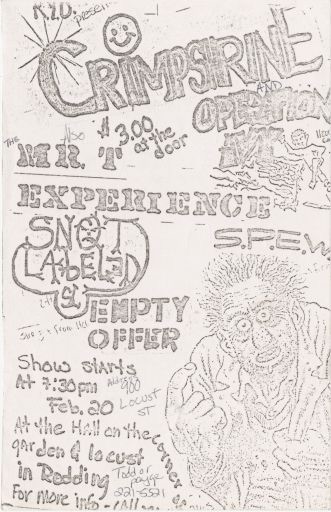 K.I.D. presents
CRIMPSHRINE
AND
OPERATION
IVY
also
$3.00
at the
door
THE
MR. T
EXPERIENCE
SNOT
LABELED
S.P.E.W.
& EMPTY
OFFER
Show starts
At 7:30pm
Feb. 20
Locust
ST
At the Hall on the corner
garden & locust
in Redding
Todd or
For more info - Call
221-5521